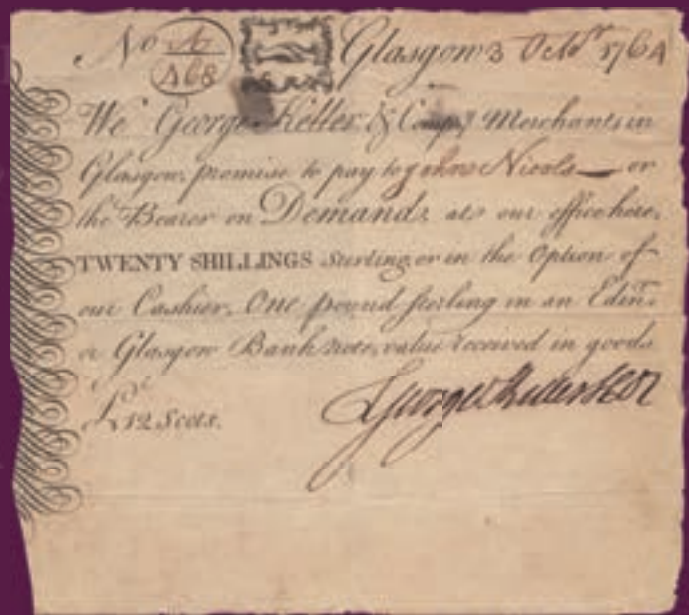 No A/468 Glasgow 3 Octr. 1764
We George Keller & Compy. Merchants in
Glasgow, promise to pay to John Nicols or
the Bearer on Demand, at our office here,
TWENTY SHILLINGS Sterling or in the Option of
our Cashier, One pound sterling in an Edinr.
or Glasgow Bank note, value received in goods
£12 Scots.
George Keller & Co